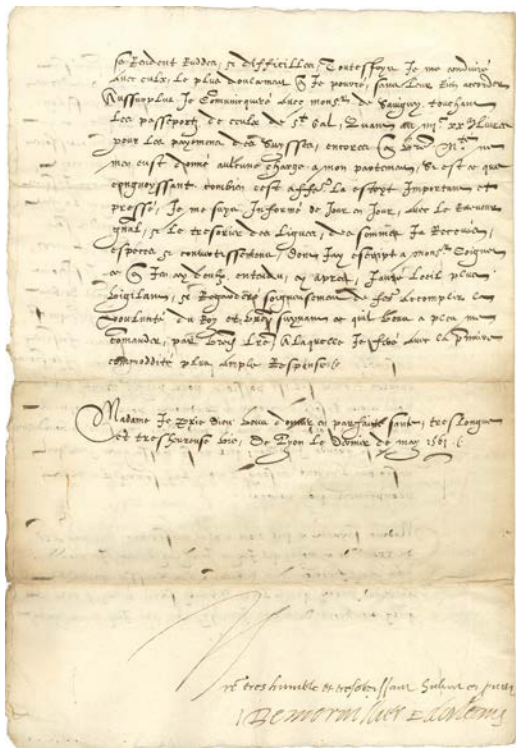 se rendent rudes, si difficilles, Toutesfoys Je me conduiré
avec eulx, le plus doulcement q Je pourré, sans leur rien accorder
Au surplus Je communiqueré avec mons.r de touchant
les passeportz de ceulx de S.t Gal, Quant au iiij xx livres
pour les payemens des Suysses, encores q vre M.té ne
men eust donné aulcune charge a mon partement, Si est ce que
congnoyssant combien cest aff.re La estoyt Important et
pressé, Je me suys Informé de Jour en Jour, avec le Receveur
gnal, et le tresorier des Ligues, des sommes Ja Receues,
especes et convertissement, dont Jay escript a mons.r
ce q Jen ay peu entendre, cy apres, Jauré loeil plus
vigilant, et Regarderé soigneusement de faire accomplir la
voulunté du Roy et vre, suyvant ce quil vous a pleu me
comander, par voz lres, A laquelle Je feré avec la premiere
commoddité plus ample Response
Madame Je prie dieu vous donner en parfaite santé, tres longue
et tres heureuse vie, De Lyon le dernier de may 1561
Vre tres humble et tres obeissant subiect et